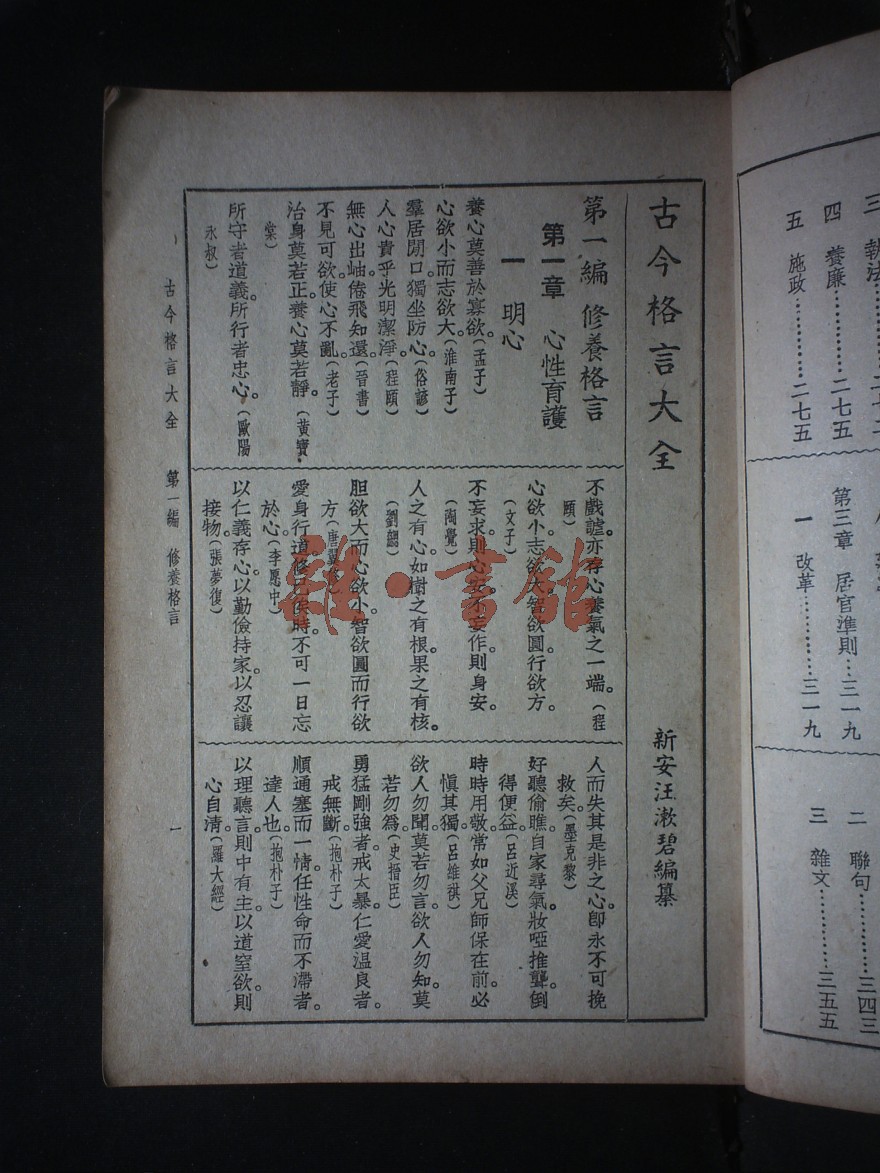 古今格言大全
新安汪漱碧編纂
第一編 修養格言
第一章 心性育護
一 明心
養心莫善於寡欲。(孟子)
心欲小而志欲大。(淮南子)
羣居閉口獨坐防心。(俗諺)
人心貴乎光明潔淨。(程頤)
無心出岫倦飛知還。(晉書)
不見可欲使心不亂。(老子)
治身莫若正。養心莫若靜。(黃寶
棠)
所守者道義。所行者忠心。(歐陽
永叔)
不戲謔。亦存心養氣之一端。(程
頤)
心欲小。志欲大。智欲圓。行欲方。
(文子)
不妄求。則心安。不妄作。則身安。
(陶覺)
人之有心。如樹之有根。果之有核。
(劉勰)
胆欲大而心欲小。智欲圓而行欲
方。(唐翼修)
愛身行道。修己俟時。不可一日忘
於心。(李愿中)
以仁義存心。以勤儉持家。以忍讓
接物。(張夢復)
人而失其是非之心。卽永不可挽
救矣。(墨克黎)
好聽偷瞧。自家尋氣。妝啞推聾。倒
得便益。(呂近溪)
時時用敬。常如父兄師保在前。必
愼其獨。(呂維祺)
欲人勿聞。莫若勿言。欲人勿知。莫
若勿爲。(史搢臣)
勇猛剛強者。戒太暴。仁愛温良者。
戒無斷。(抱朴子)
順通塞而一情。任性命而不滯者。
達人也。(抱朴子)
以理聽言。則中有主。以道窒欲。則
心自清。(羅大經)
古今格言大全 第一編 修養格言
一
三 執法
四 養廉…………二七五
五 施政…………二七五
第三章 居官準則…三一九
一 改革…………三一九
二 聯句…………三四三
三 雜文…………三五五
雜·書館